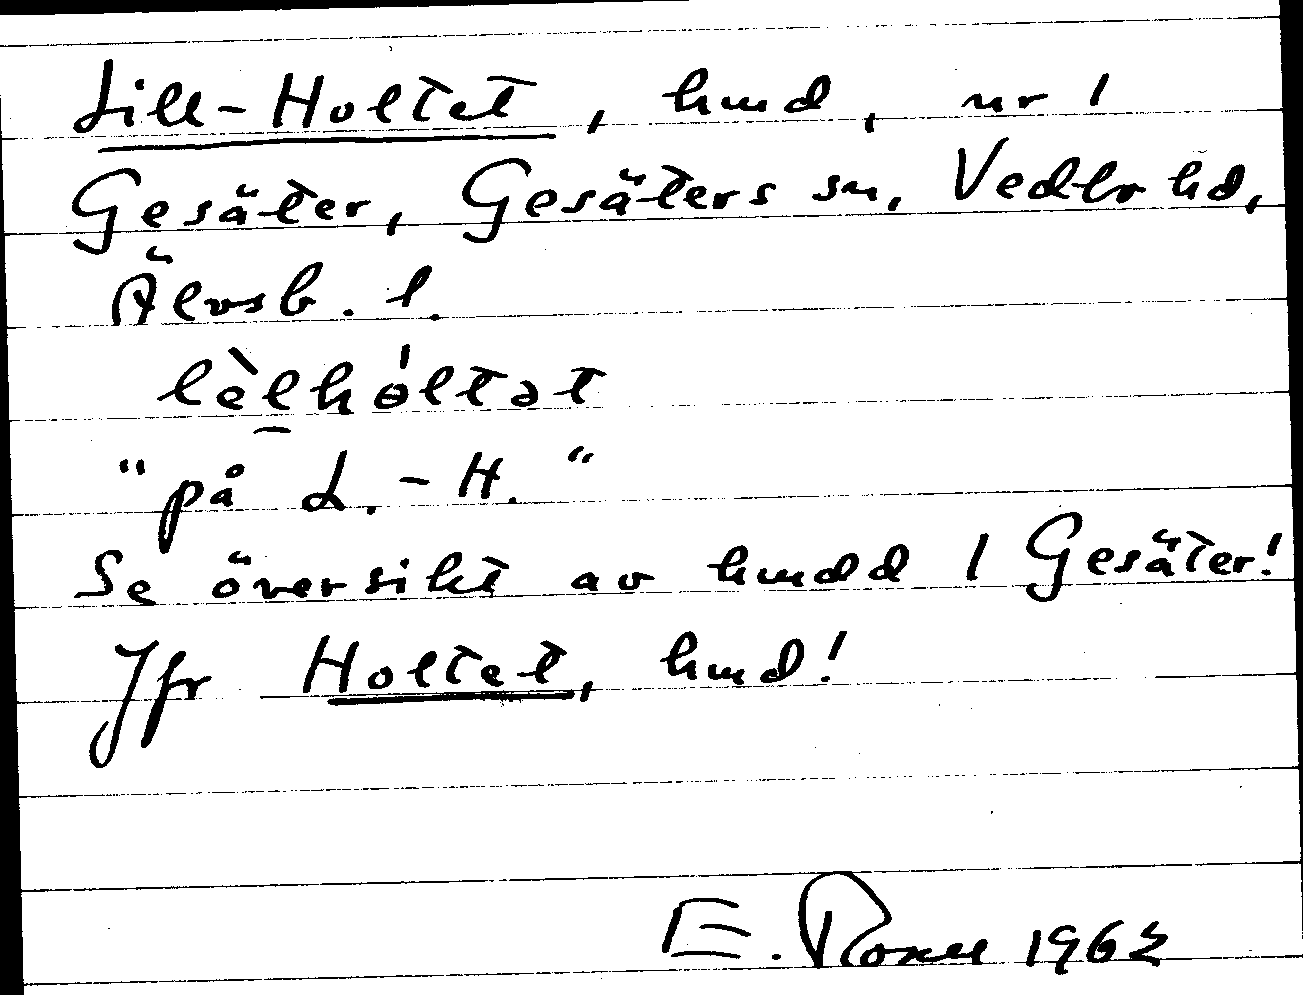 Lill-Holtet, hmd, nr 1
Gesäter, Gesäters sn, Vedbo hd,
Älvsb. l.
lèlhóltət
"på L.-H."
Se översikt av hmdd 1 Gesäter!
Jfr Holtet, hmd!
E. Rosell 1962